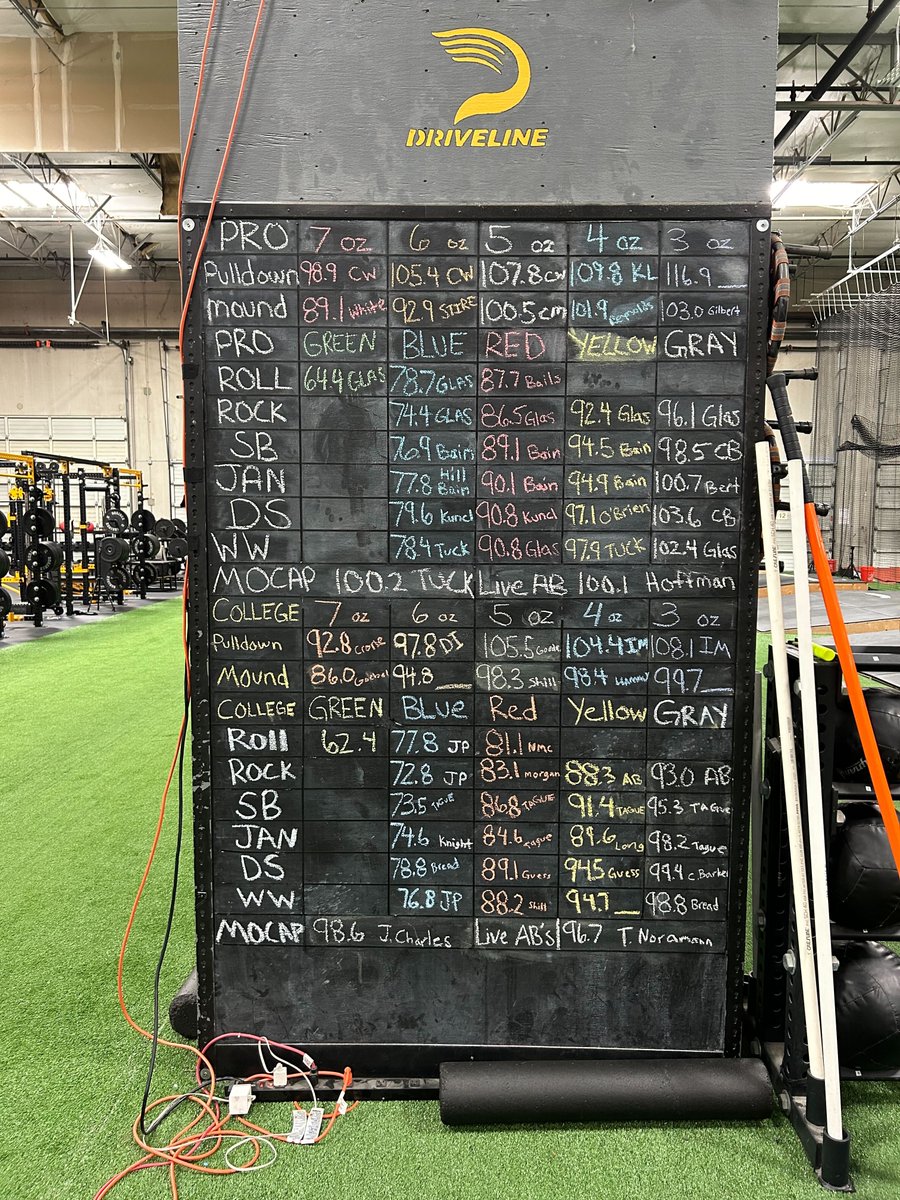 DRIVELINE
PRO 7 oz 6 oz 5 oz 4 oz 3 oz
Pulldown 98.9 CW 105.4 CW 107.8 CW 109.8 KL 116.9
Mound 89.1 White 92.9 100.5 cm 101.9 Reynolds 103.0 Gilbert
PRO GREEN BLUE RED YELLOW GRAY
ROLL 64.4 GLAS 78.7 GLAS 87.7 Bails
ROCK 74.4 GLAS 86.5 Glas 92.4 Glas 96.1 Glas
SB 76.9 Bain 89.1 Bain 94.5 Bain 98.5 CB
JAN 77.8 Hill Bain 90.1 Bain 94.9 Bain 100.7 Bert
DS 79.6 Kuncl 90.8 Kuncl 97.1 O'Brien 103.6 CB
WW 78.4 Tuck 90.8 Glas 97.9 TUCK 102.4 Glas
MOCAP 100.2 TUCK Live AB 100.1 Hoffman
COLLEGE 7 oz 6 oz 5 oz 4 oz 3 oz
Pulldown 92.8 Crone 97.8 DJ 105.5 104.4 IM 108.1 IM
Mound 86.0 94.8 98.3 Shill 98.4 99.7
COLLEGE GREEN BLUE Red Yellow GRAY
Roll 62.4 77.8 JP 81.1 NMC
ROCK 72.8 JP 83.1 morgan 88.3 AB 93.0 AB
SB 73.5 TAGUE 86.8 TAGUE 91.4 TAGUE 95.3 TAGUE
JAN 74.6 Knight 84.6 Tague 89.6 Long 98.2 Tague
DS 78.8 Bread 89.1 Guess 94.5 Guess 99.4 C Barker
WW 76.8 JP 88.2 Shill 94.7 98.8 Bread
MOCAP 98.6 J.Charles Live AB's 96.7 T. Noramann